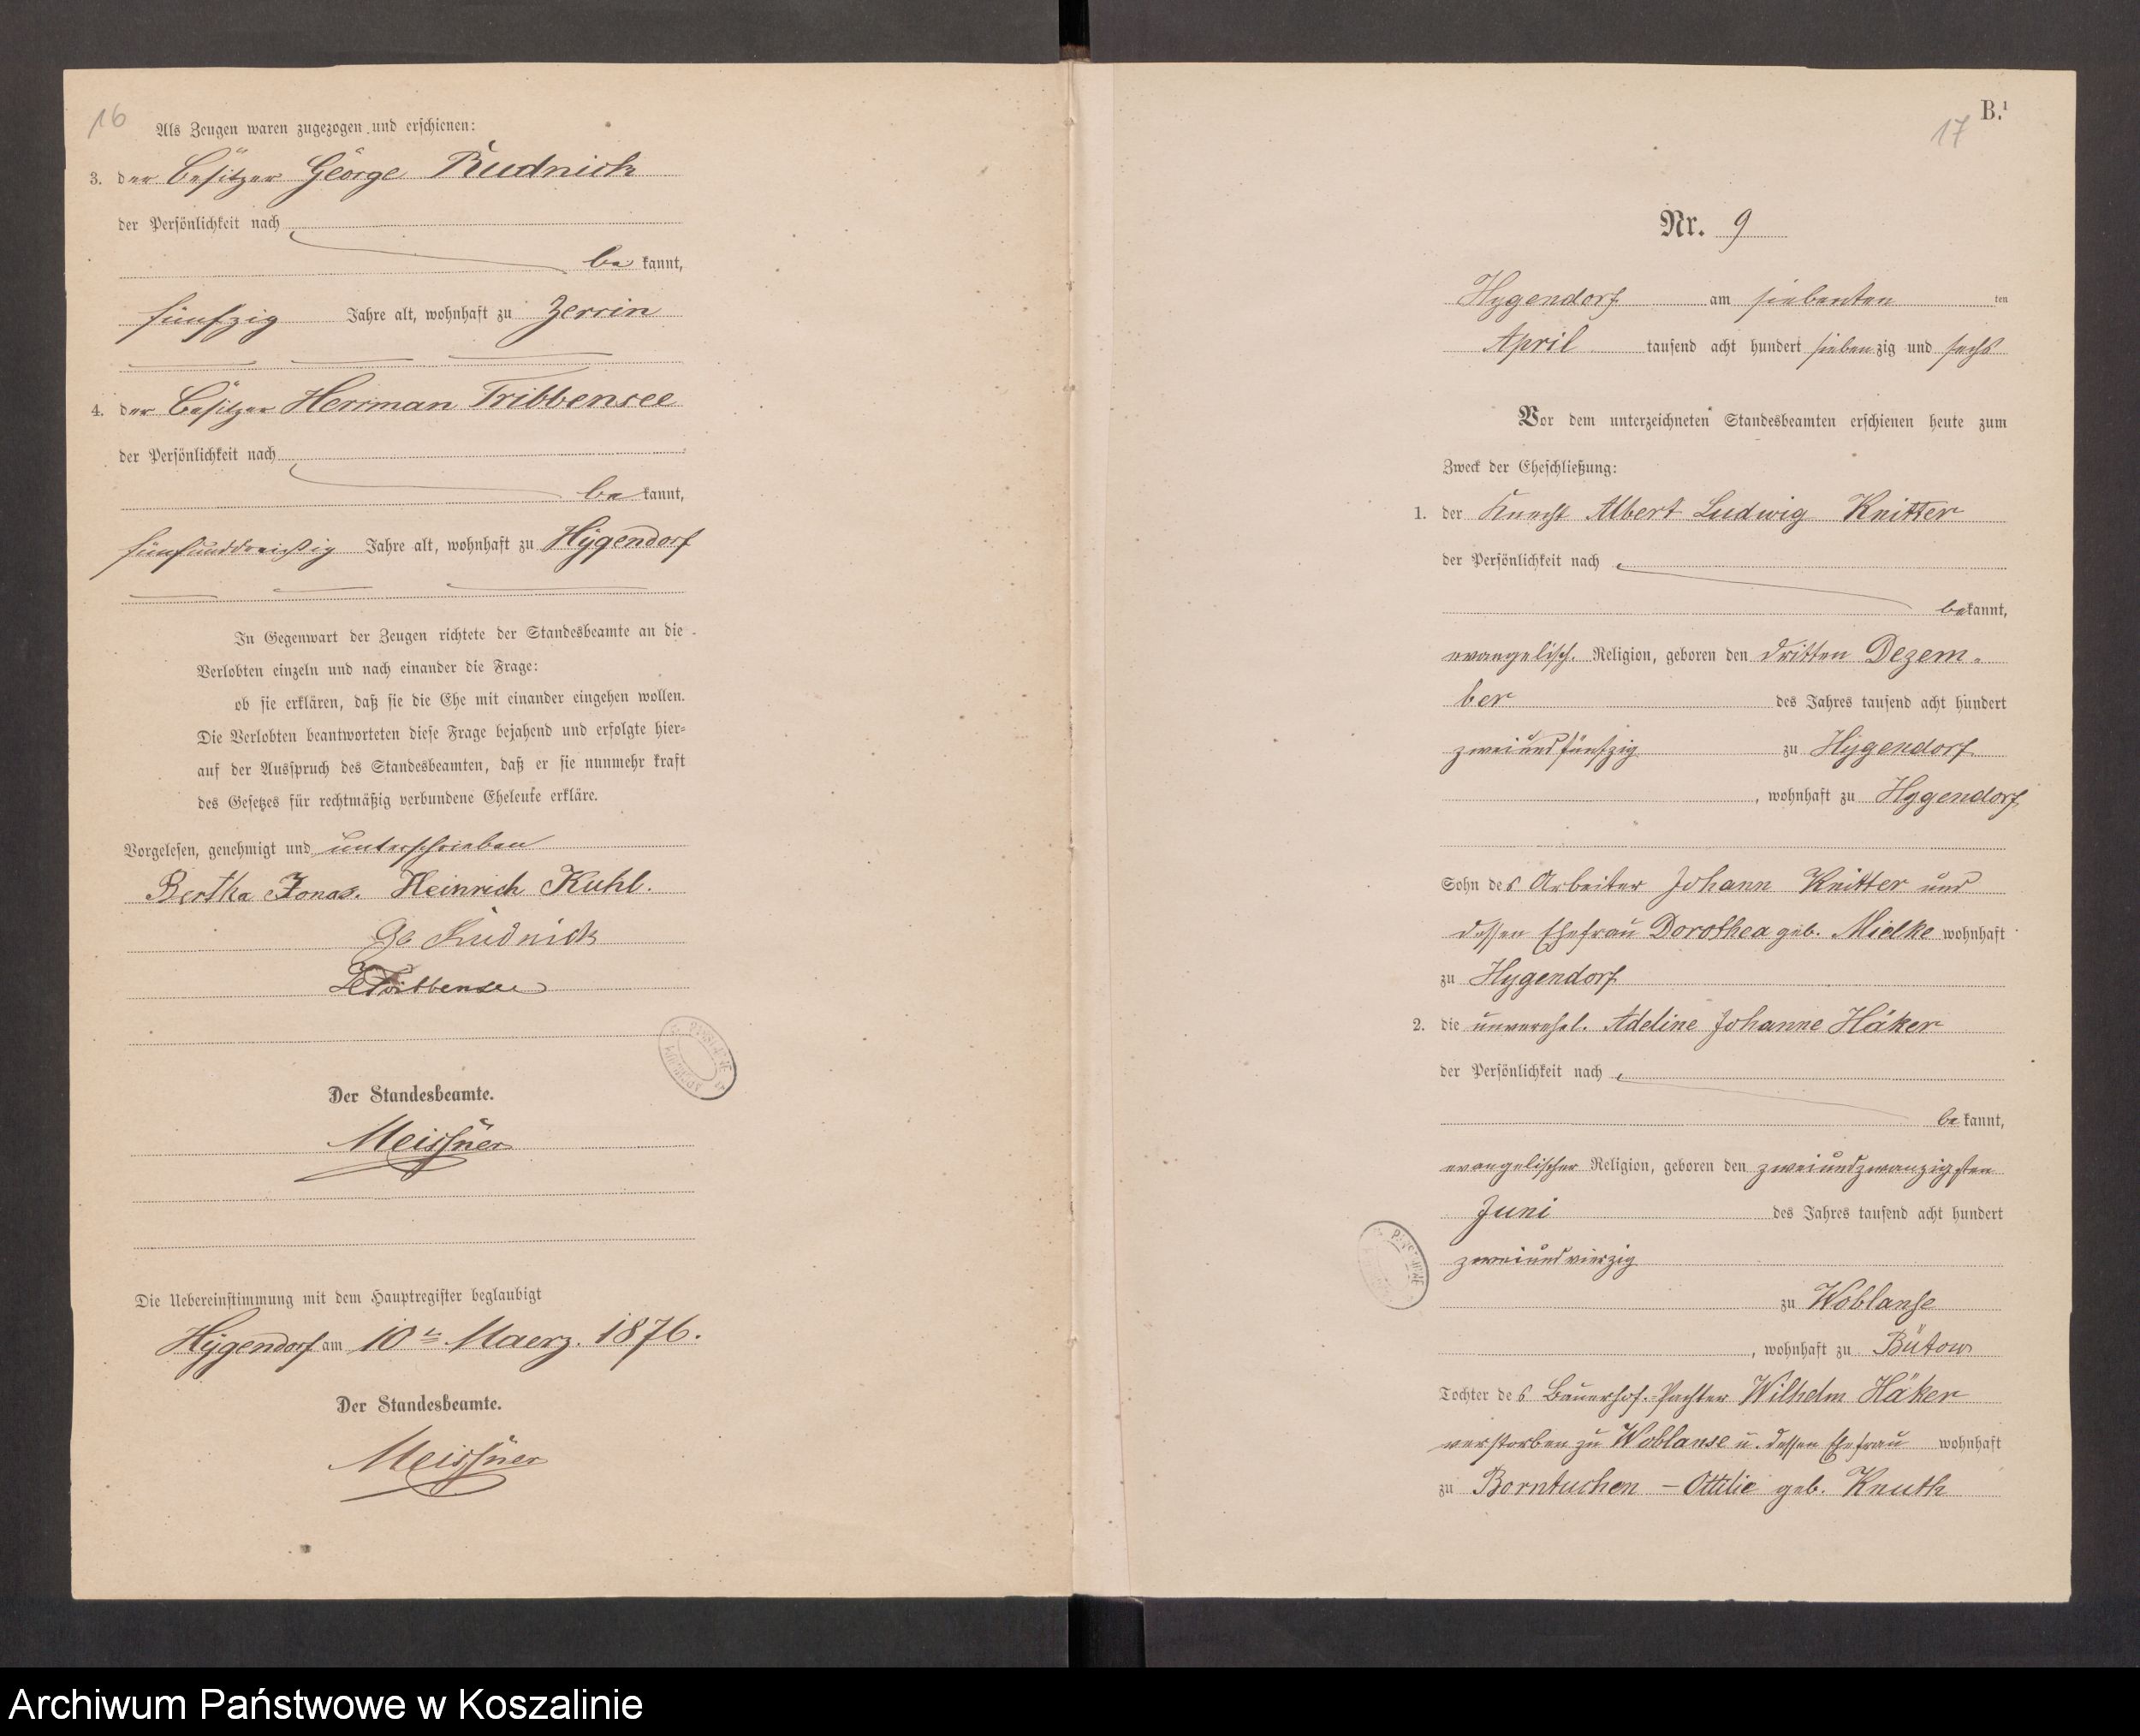 16
Als Zeugen waren zugezogen und erschienen:
3. der Besitzer George Rudnick
der Persönlichkeit nach
be kannt,
fünfzig Jahre alt, wohnhaft zu Zerrin
4. der Besitzer Herrman Tribbensee
der Persönlichkeit nach
be kannt,
fünfunddreißig Jahre alt, wohnhaft zu Hygendorf
In Gegenwart der Zeugen richtete der Standesbeamte an die
Verlobten einzeln und nach einander die Frage:
ob sie erklären, daß sie die Ehe mit einander eingehen wollen.
Die Verlobten beantworteten diese Frage bejahend und erfolgte hier=
auf der Ausspruch des Standesbeamten, daß er sie nunmehr kraft
des Gesetzes für rechtmäßig verbundene Eheleute erkläre.
Vorgelesen, genehmigt und unterschrieben
Bertha Jonas. Heinrich Kuhl.
Ge Rudnick
H Tribbensee
Der Standesbeamte.
Meissner
Die Uebereinstimmung mit dem Hauptregister beglaubigt
Hygendorf am 10ten Maerz. 1876.
Der Standesbeamte.
Meissner
B.1
17
Nr. 9
Hygendorf am siebenten ten
April tausend acht hundert siebenzig und sechs
Vor dem unterzeichneten Standesbeamten erschienen heute zum
Zweck der Eheschließung:
1. der Knecht Albert Ludwig Knitter
der Persönlichkeit nach
bekannt,
evangelisch. Religion, geboren den dritten Dezem-
ber des Jahres tausend acht hundert
zweiundfünfzig zu Hygendorf
, wohnhaft zu Hygendorf
Sohn des Arbeiter Johann Knitter und
dessen Ehefrau Dorothea geb. Mielke wohnhaft
zu Hygendorf
2. die unverehel. Adeline Johanne Häker
der Persönlichkeit nach
be kannt,
evangelischer Religion, geboren den zweiundzwanzigsten
Juni des Jahres tausend acht hundert
zweiundvierzig
zu Woblanse
, wohnhaft zu Bütow
Tochter des Bauerhof-Pachter Wilhelm Häker
verstorben zu Woblanse u. dessen Ehefrau wohnhaft
zu Borntuchen – Ottilie geb. Knuth
Archiwum Państwowe w Koszalinie